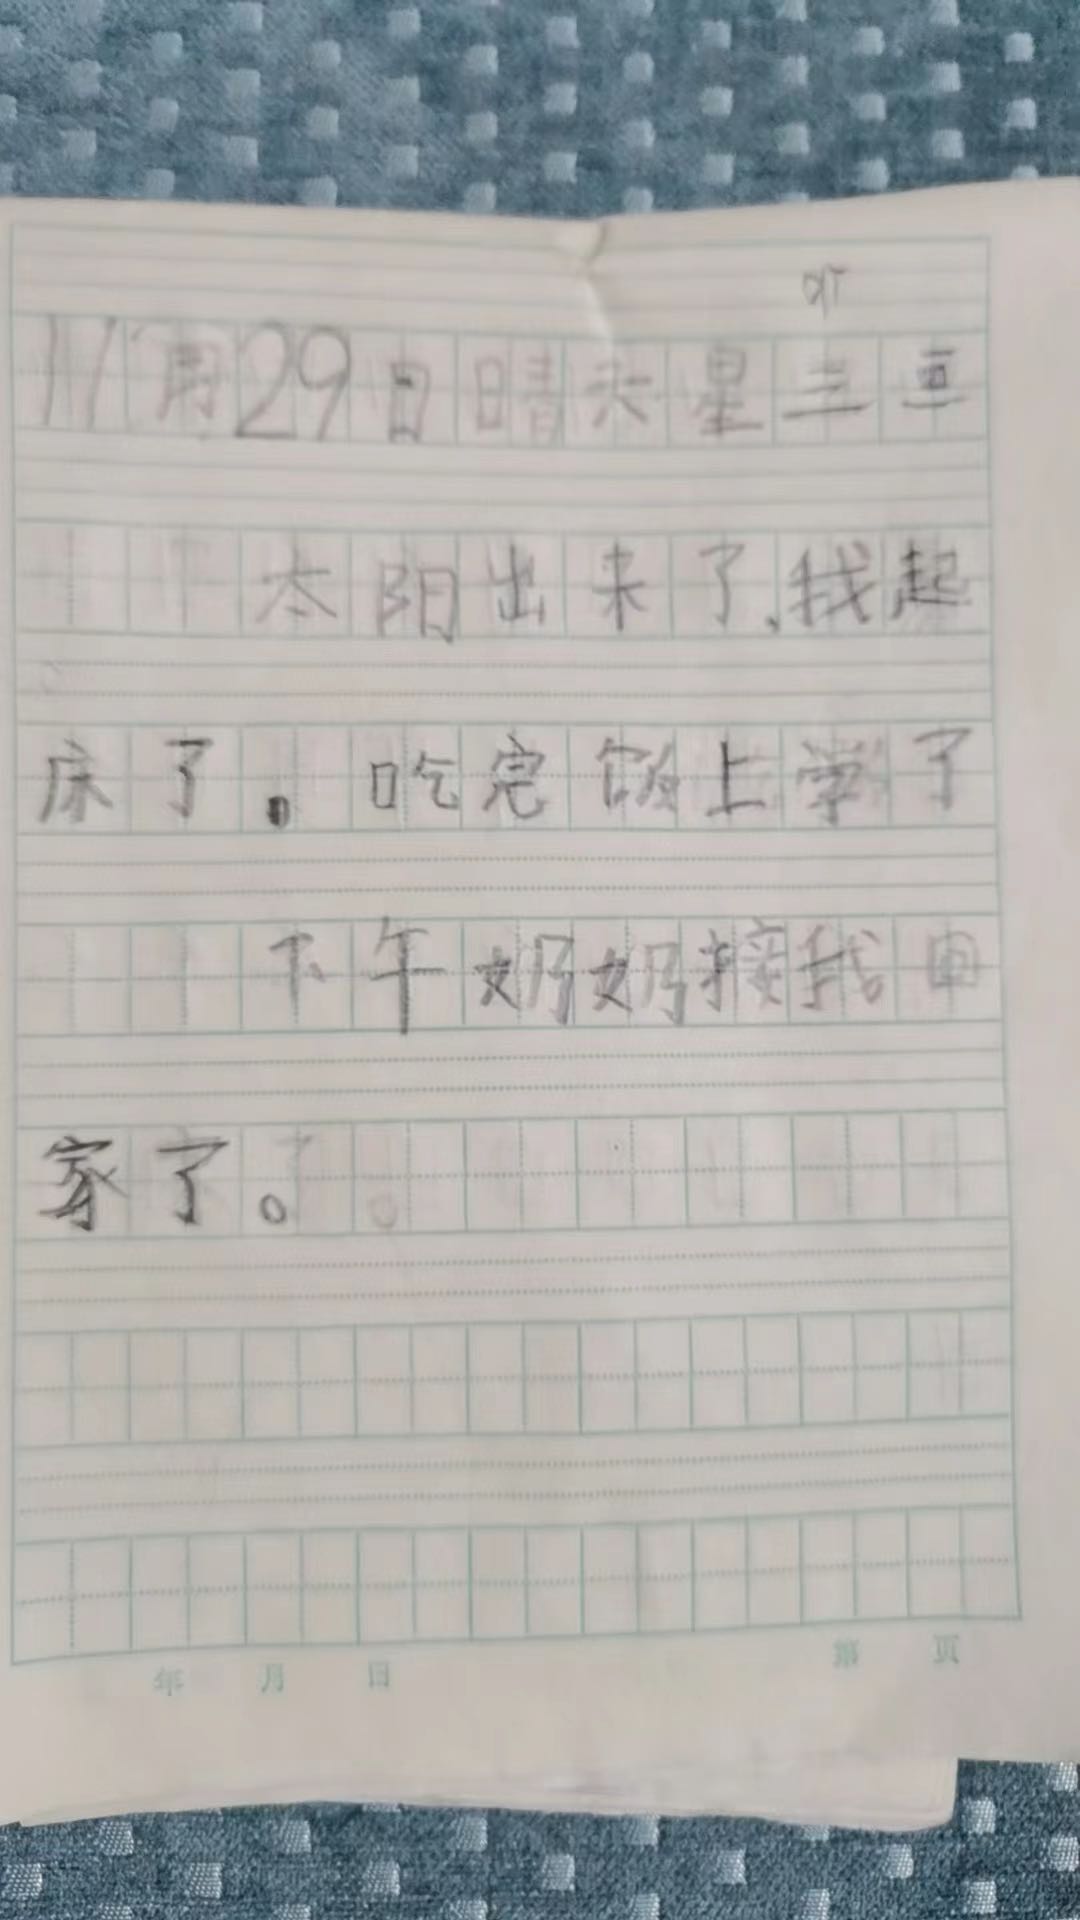 11月29日晴天星三
太阳出来了,我起
床了。吃完饭上学了
下午奶奶接我回
家了。
年 月 日 第 页